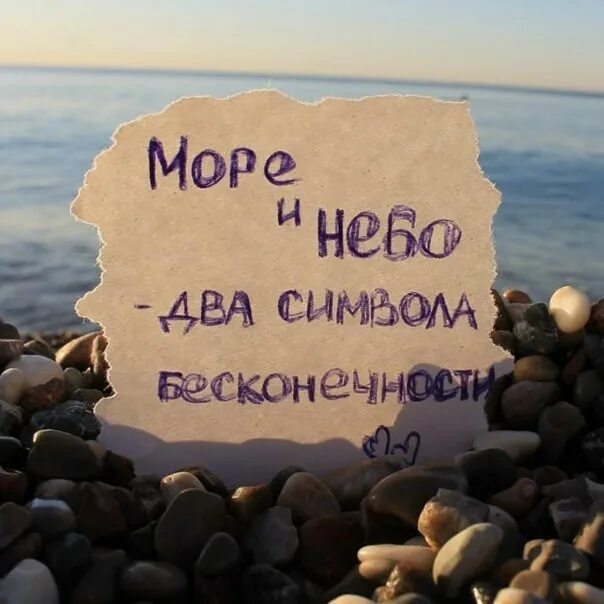 Море
и небо
- два символа
бесконечности